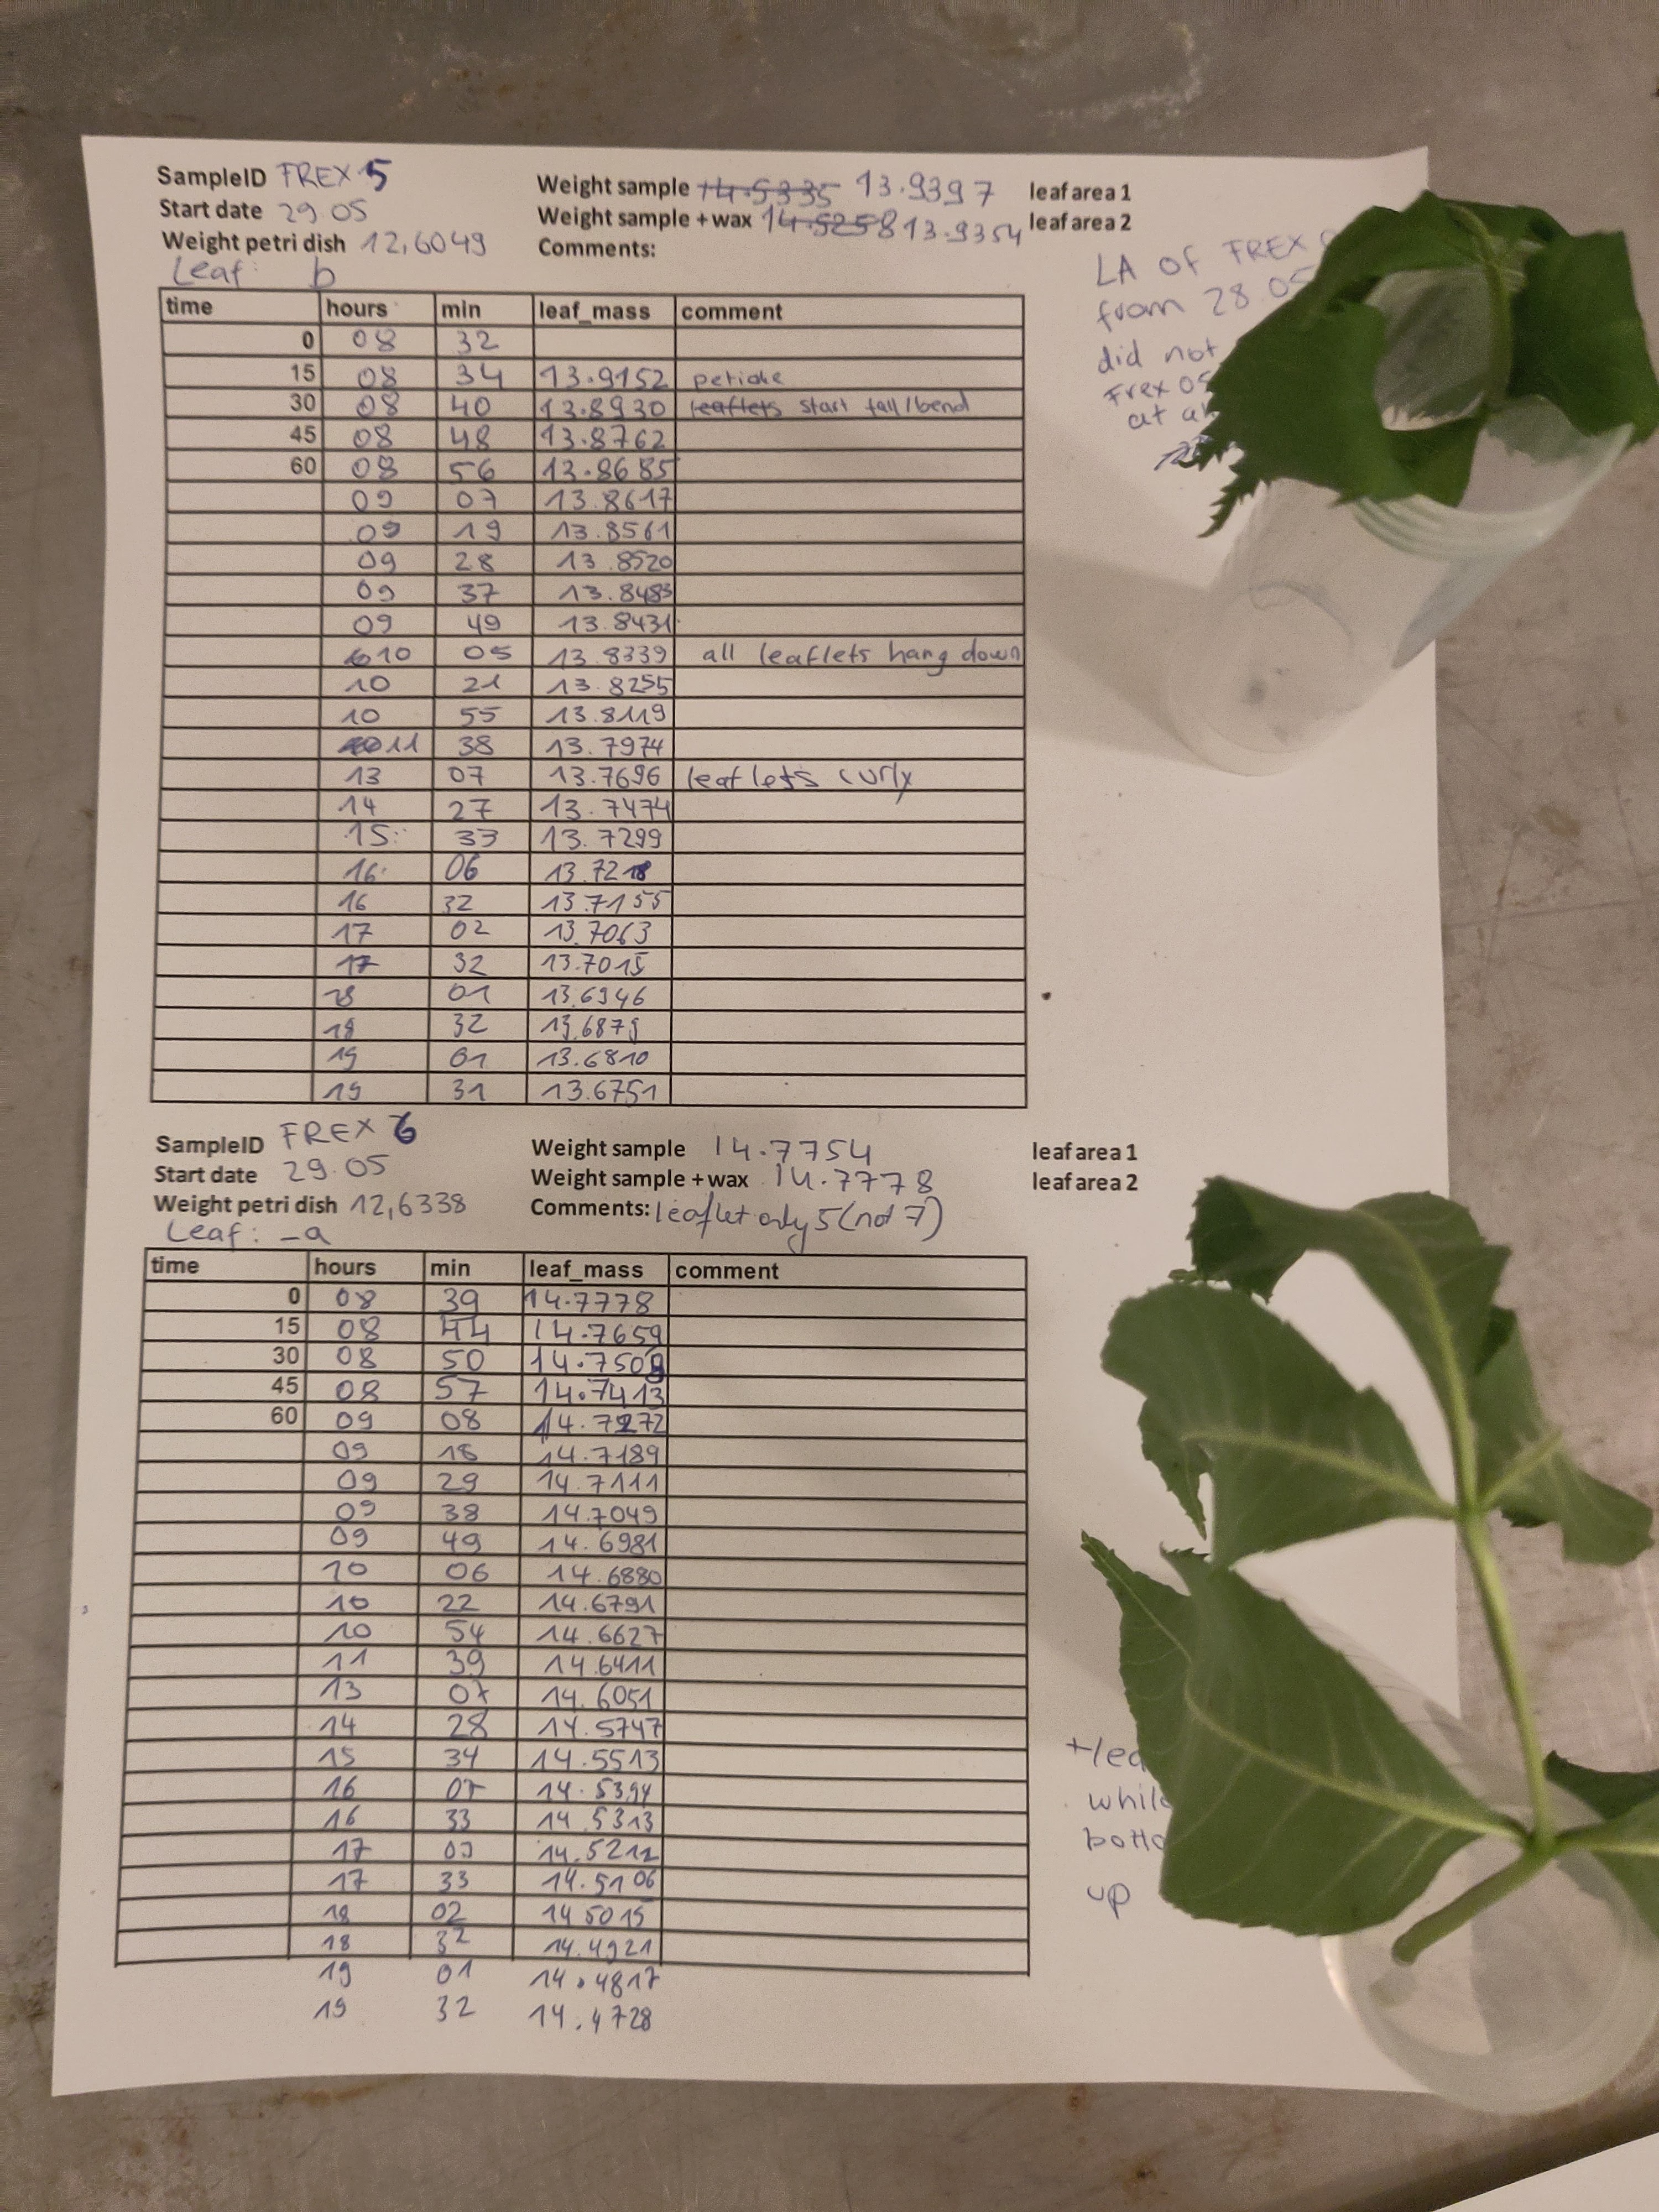 SampleID FREX 5 Weight sample 14.5335 13.9397 leaf area 1
Start date 29.05 Weight sample + wax 14.5258 13.9354 leaf area 2
Weight petri dish 12,6049 Comments:
Leaf: b
LA of FREX
from 28.05
did not
Frex 05
at
time hours min leaf_mass comment
0 08 32
15 08 34 13.9152 petiole
30 08 40 13.8930 leaflets start fall/bend
45 08 48 13.8762
60 08 56 13.8685
09 07 13.8617
09 19 13.8561
09 28 13.8520
09 37 13.8483
09 49 13.8431
10 05 13.8339 all leaflets hang down
10 21 13.8255
10 55 13.8119
11 38 13.7974
13 07 13.7696 leaflets curly
14 27 13.7474
15 33 13.7299
16 06 13.7218
16 32 13.7155
17 02 13.7063
17 32 13.7015
18 01 13.6946
18 32 13.6879
19 01 13.6810
19 31 13.6751
SampleID FREX 6 Weight sample 14.7754 leaf area 1
Start date 29.05 Weight sample + wax 14.7778 leaf area 2
Weight petri dish 12,6338 Comments: leaflet only 5 (not 7)
Leaf: -a
time hours min leaf_mass comment
0 08 39 14.7778
15 08 44 14.7659
30 08 50 14.7509
45 08 57 14.7413
60 09 08 14.7272
09 18 14.7189
09 29 14.7111
09 38 14.7049
09 49 14.6981
10 06 14.6880
10 22 14.6791
10 54 14.6627
11 39 14.6411
13 07 14.6051
14 28 14.5747
15 34 14.5513
16 07 14.5394
16 33 14.5313
17 03 14.5212
17 33 14.5106
18 02 14.5015
18 32 14.4921
19 01 14.4817
19 32 14.4728
while
up